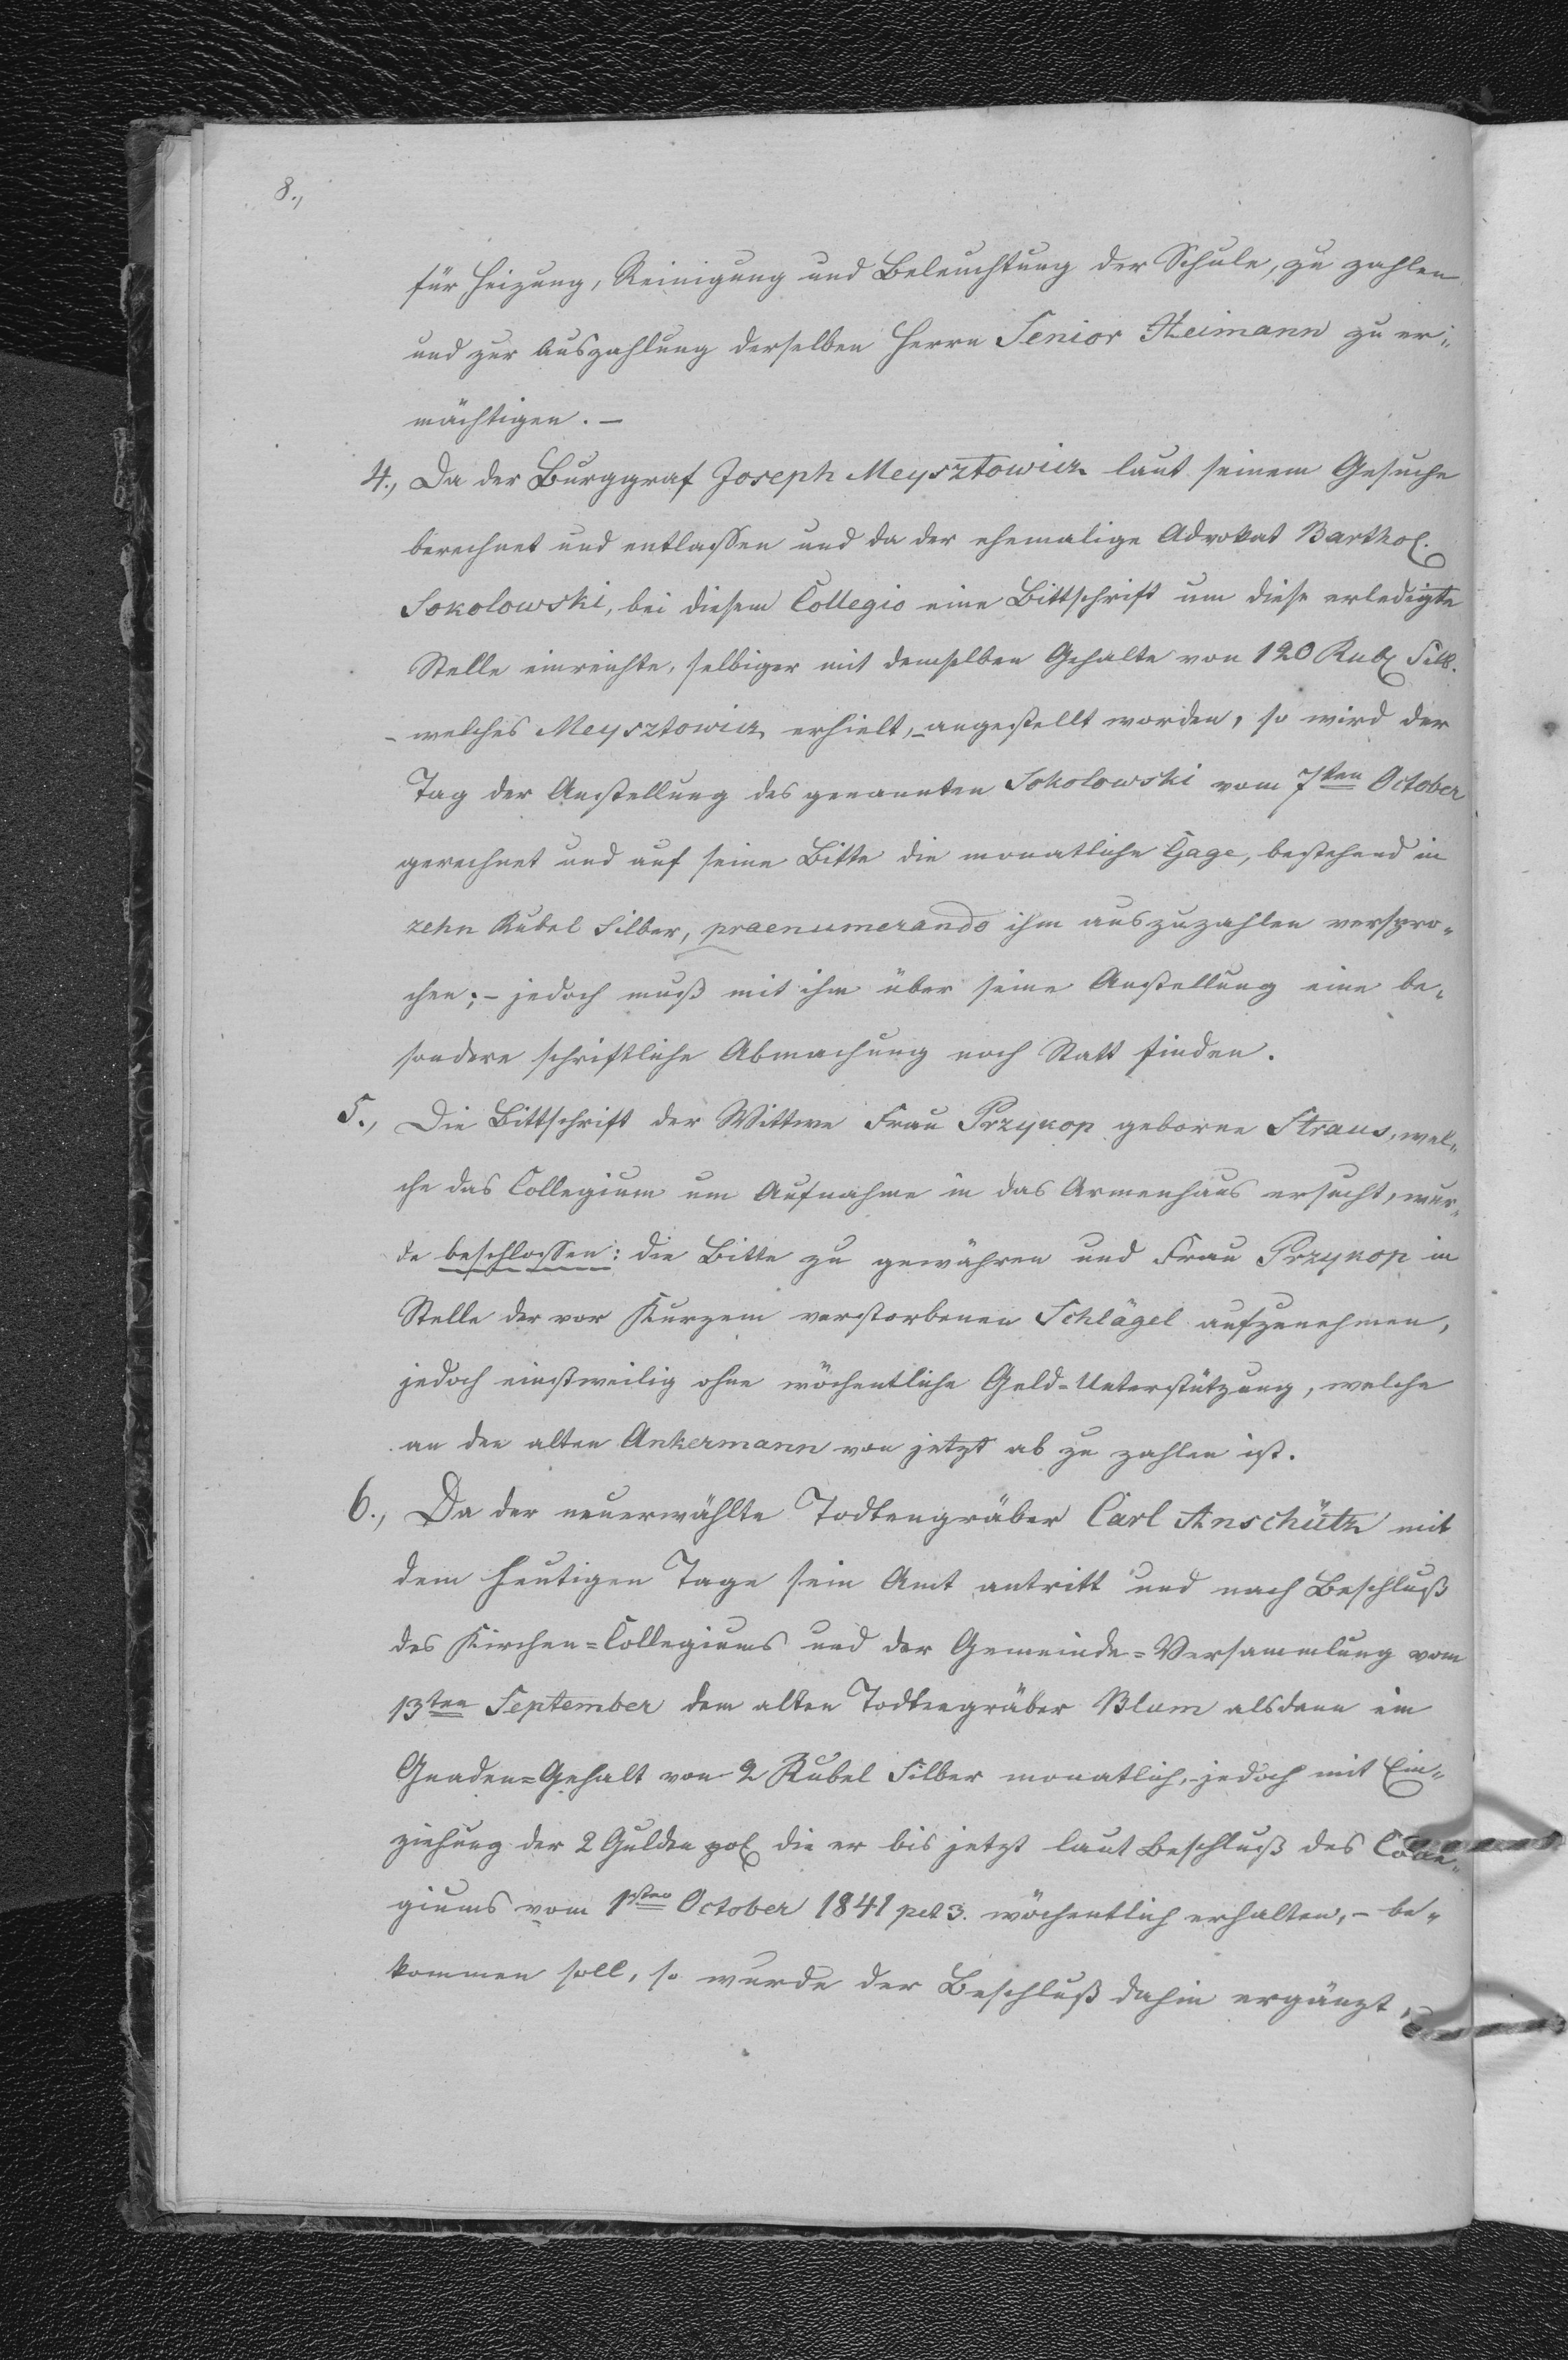 8.,
für Heizung, Reinigung und Beleuchtung der Schule, zu zahlen
und zur Auszahlung derselben Herrn Senior Heimann zu er-
mächtigen. –
4., Da der Burggraf Joseph Meysztowicz laut seinem Gesuche
berechnet und entlassen und da der ehemalige Advokat Barthol.
Sokolowski, bei diesem Collegio eine Bittschrift um diese erledigte
Stelle einreichte, selbiger mit demselben Gehalte von 120 Rub Silb.
– welches Meysztowicz erhielt, – angestellt worden, so wird der
Tag der Anstellung des genannten Sokolowski vom 7ten October
gerechnet und auf seine Bitte die monatliche Gage, bestehend in
zehn Rubel Silber, praenumerando ihm auszuzahlen verspro-
chen; – jedoch muß mit ihm über seine Anstellung eine be-
sondere schriftliche Abmachung noch Statt finden.
5., Die Bittschrift der Wittwe Frau Przykop geborne Straus, wel-
che das Collegium um Aufnahme in das Armenhaus ersucht, wur-
de beschlossen: die Bitte zu gewähren und Frau Przykop in
Stelle der vor Kurzem verstorbenen Schlägel aufzunehmen,
jedoch einstweilig ohne wöchentliche Geld-Unterstützung, welche
an den alten Ankermann von jetzt ab zu zahlen ist.
6., Da der neuerwählte Todtengräber Carl Anschütz mit
dem heutigen Tage sein Amt antritt und nach Beschluß
des Kirchen-Collegiums und der Gemeinde-Versammlung vom
13ten September dem alten Todtengräber Blum alsdann ein
Gnaden-Gehalt von 2 Rubel Silber monatlich, – jedoch mit Ein-
ziehung der 2 Gulden pol die er bis jetzt laut Beschluß des Colle-
giums vom 1sten October 1841 pct 3. wöchentlich erhalten, – be-
kommen soll, so wurde der Beschluß dahin ergänzt,